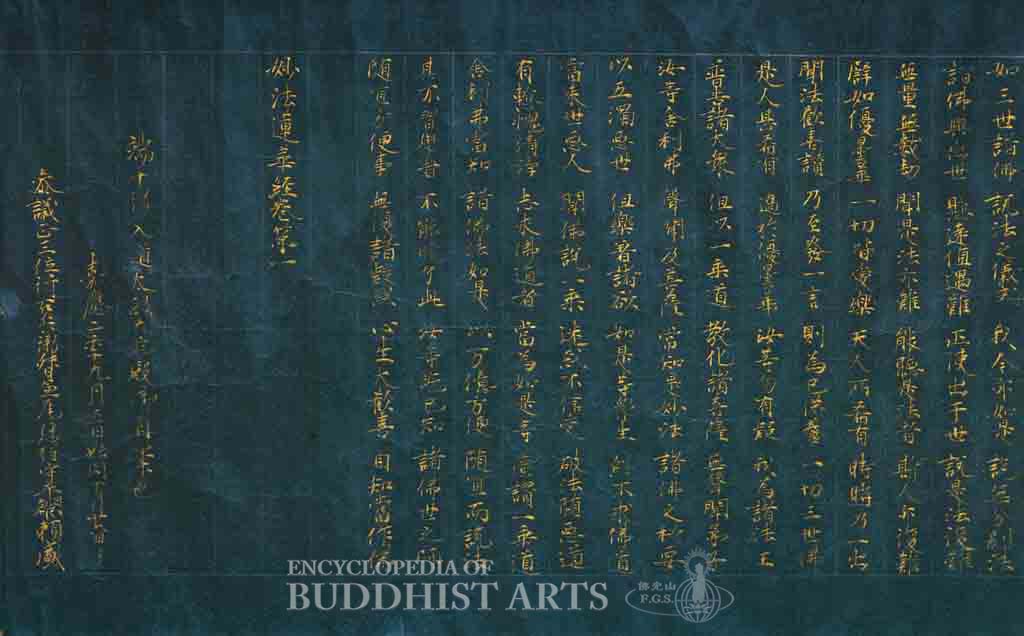 如三世諸佛 說法之儀式 我今亦如是 說無分別法
諸佛興出世 懸遠值遇難 正使出于世 說是法復難
無量無數劫 聞是法亦難 能聽是法者 斯人亦復難
譬如優曇華 一切皆愛樂 天人所希有 時時乃一出
聞法歡喜讚 乃至發一言 則為已供養 一切三世佛
是人甚希有 過於優曇華 汝等勿有疑 我為諸法王
普告諸大眾 但以一乘道 教化諸菩薩 無聲聞弟子
汝等舍利弗 聲聞及菩薩 當知是妙法 諸佛之秘要
以五濁惡世 但樂著諸欲 如是等眾生 終不求佛道
當來世惡人 聞佛說一乘 迷惑不信受 破法墮惡道
有慚愧清淨 志求佛道者 當為如是等 廣讚一乘道
舍利弗當知 諸佛法如是 以万億方便 隨宜而說法
其不習學者 不能曉了此 汝等既已知 諸佛世之師
隨宜方便事 無復諸疑惑 心生大歡喜 自知當作佛
妙法蓮華經卷第一
入道
嘉應二年九月
參議正三位行 賴盛
ENCYCLOPEDIA OF
BUDDHIST ARTS
佛光山
F.G.S.